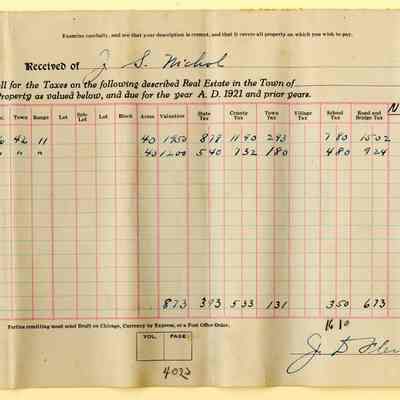 Examine carefully, and see that your description is correct, and that it covers all property on which you wish to pay.
Received of J. S. Nichol
oll for the Taxes on the following described Real Estate in the Town of
Property as valued below, and due for the year A. D. 1921 and prior years.
Town Range Lot Sub-Lot Lot Block Acres Valuation State Tax County Tax Town Tax Village Tax School Tax Road and Bridge Tax
42 11 40 1950 878 1190 293 780 1502
" " 40 1200 540 732 180 480 924
873 393 533 131 350 673
Parties remitting must send Draft on Chicago, Currency by Express, or a Post Office Order.
1610
VOL. PAGE
J. D.
4023